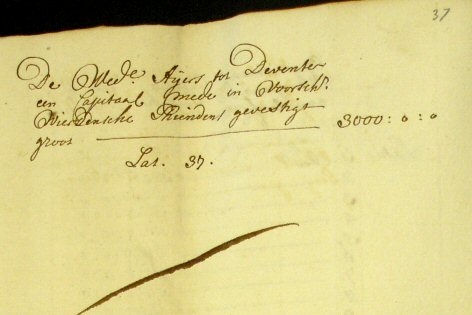 37
De Wed.e Aijers tot Deventer
een Capitaal mede in Voorsch.
Wierdensche Thiendens gevestigt
groot 3000 : 0 : 0
Lat. 37.